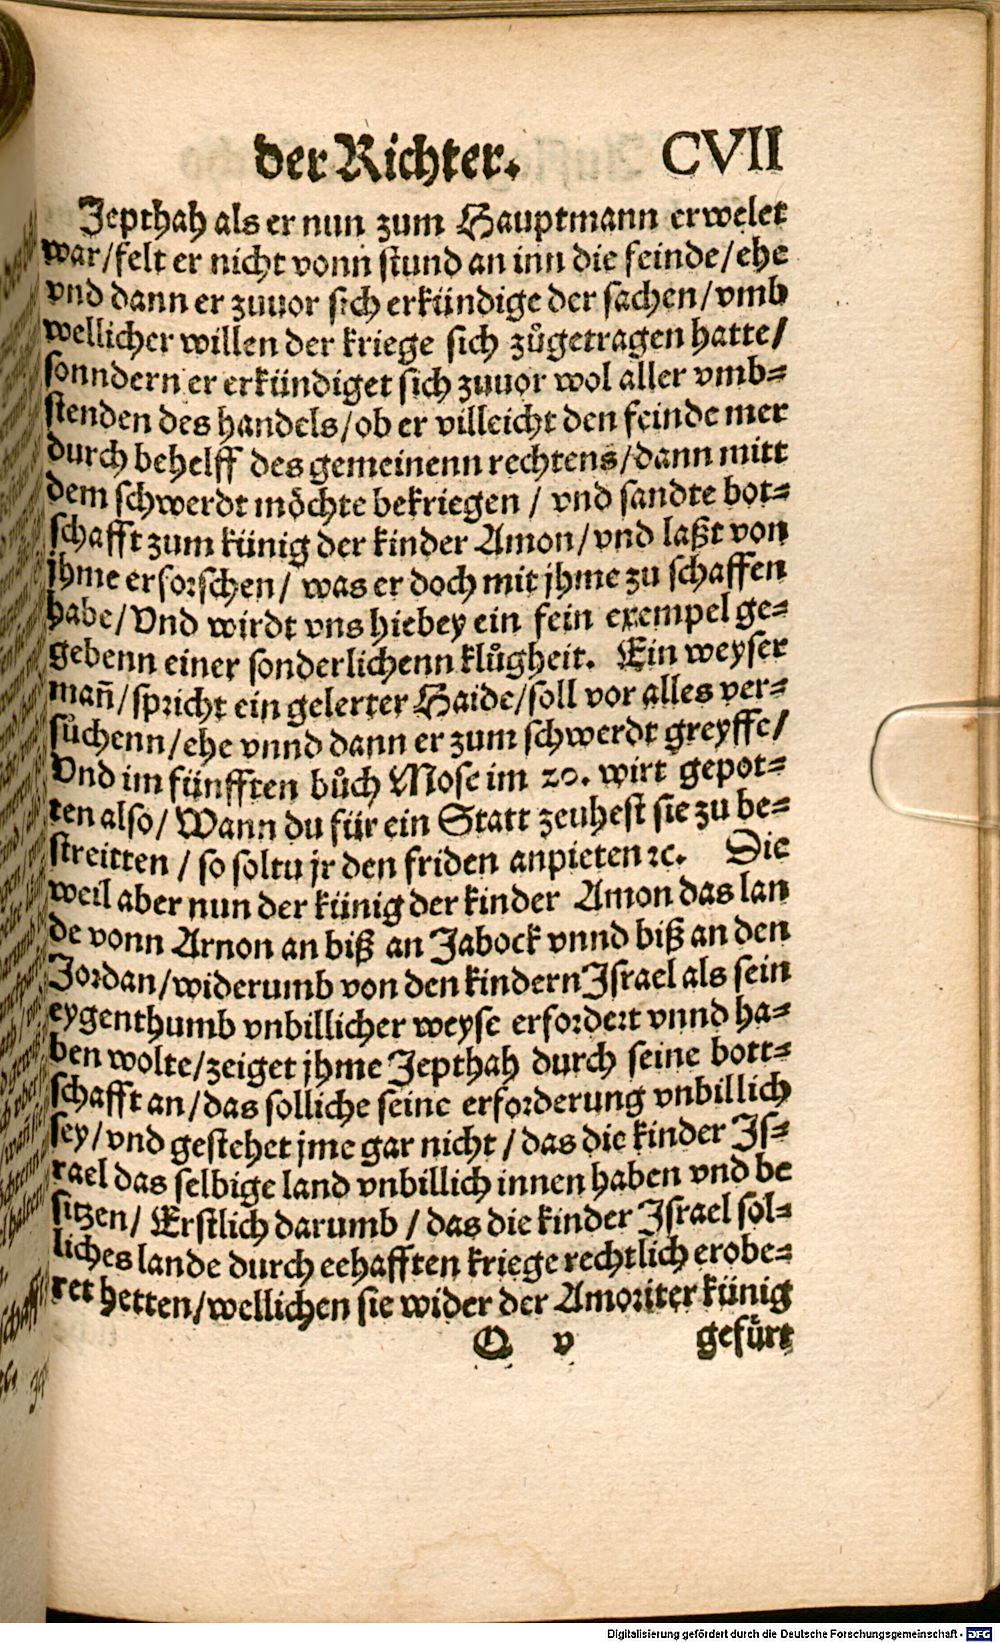 der Richter. CVII
Jepthah als er nun zum Hauptmann erwelet
war/felt er nicht vonn stund an inn die feinde/ehe
vnd dann er zuuor sich erkündige der sachen/vmb
wellicher willen der kriege sich zůgetragen hatte/
sonndern er erkündiget sich zuuor wol aller vmb⸗
stenden des handels/ob er villeicht den feinde mer
durch behelff des gemeinenn rechtens/dann mitt
dem schwerdt möchte bekriegen / vnd sandte bot⸗
schafft zum künig der kinder Amon/vnd laßt von
jhme erforschen/ was er doch mit jhme zu schaffen
habe/Vnd wirdt vns hiebey ein fein exempel ge⸗
gebenn einer sonderlichenn klůgheit. Ein weyser
man̄/spricht ein gelerter Haide/soll vor alles ver⸗
sůchenn/ehe vnnd dann er zum schwerdt greyffe/
Vnd im fünfften bůch Mose im 20. wirt gepot⸗
ten also/ Wann du für ein Statt zeuhest sie zu be⸗
streitten / so soltu jr den friden anpieten ꝛc. Die
weil aber nun der künig der kinder Amon das lan
de vonn Arnon an biß an Jabock vnnd biß an den
Jordan/widerumb von den kindern Israel als sein
eygenthumb vnbillicher weyse erfordert vnnd ha⸗
ben wolte/zeiget jhme Jepthah durch seine bott⸗
schafft an/das solliche seine erforderung vnbillich
sey/vnd gestehet jme gar nicht / das die kinder Is⸗
rael das selbige land vnbillich innen haben vnd be
sitzen/ Erstlich darumb / das die kinder Israel sol⸗
liches lande durch eehafften kriege rechtlich erobe⸗
ret hetten/wellichen sie wider der Amoriter künig
O v gefürt
Digitalisierung gefördert durch die Deutsche Forschungsgemeinschaft - DFG